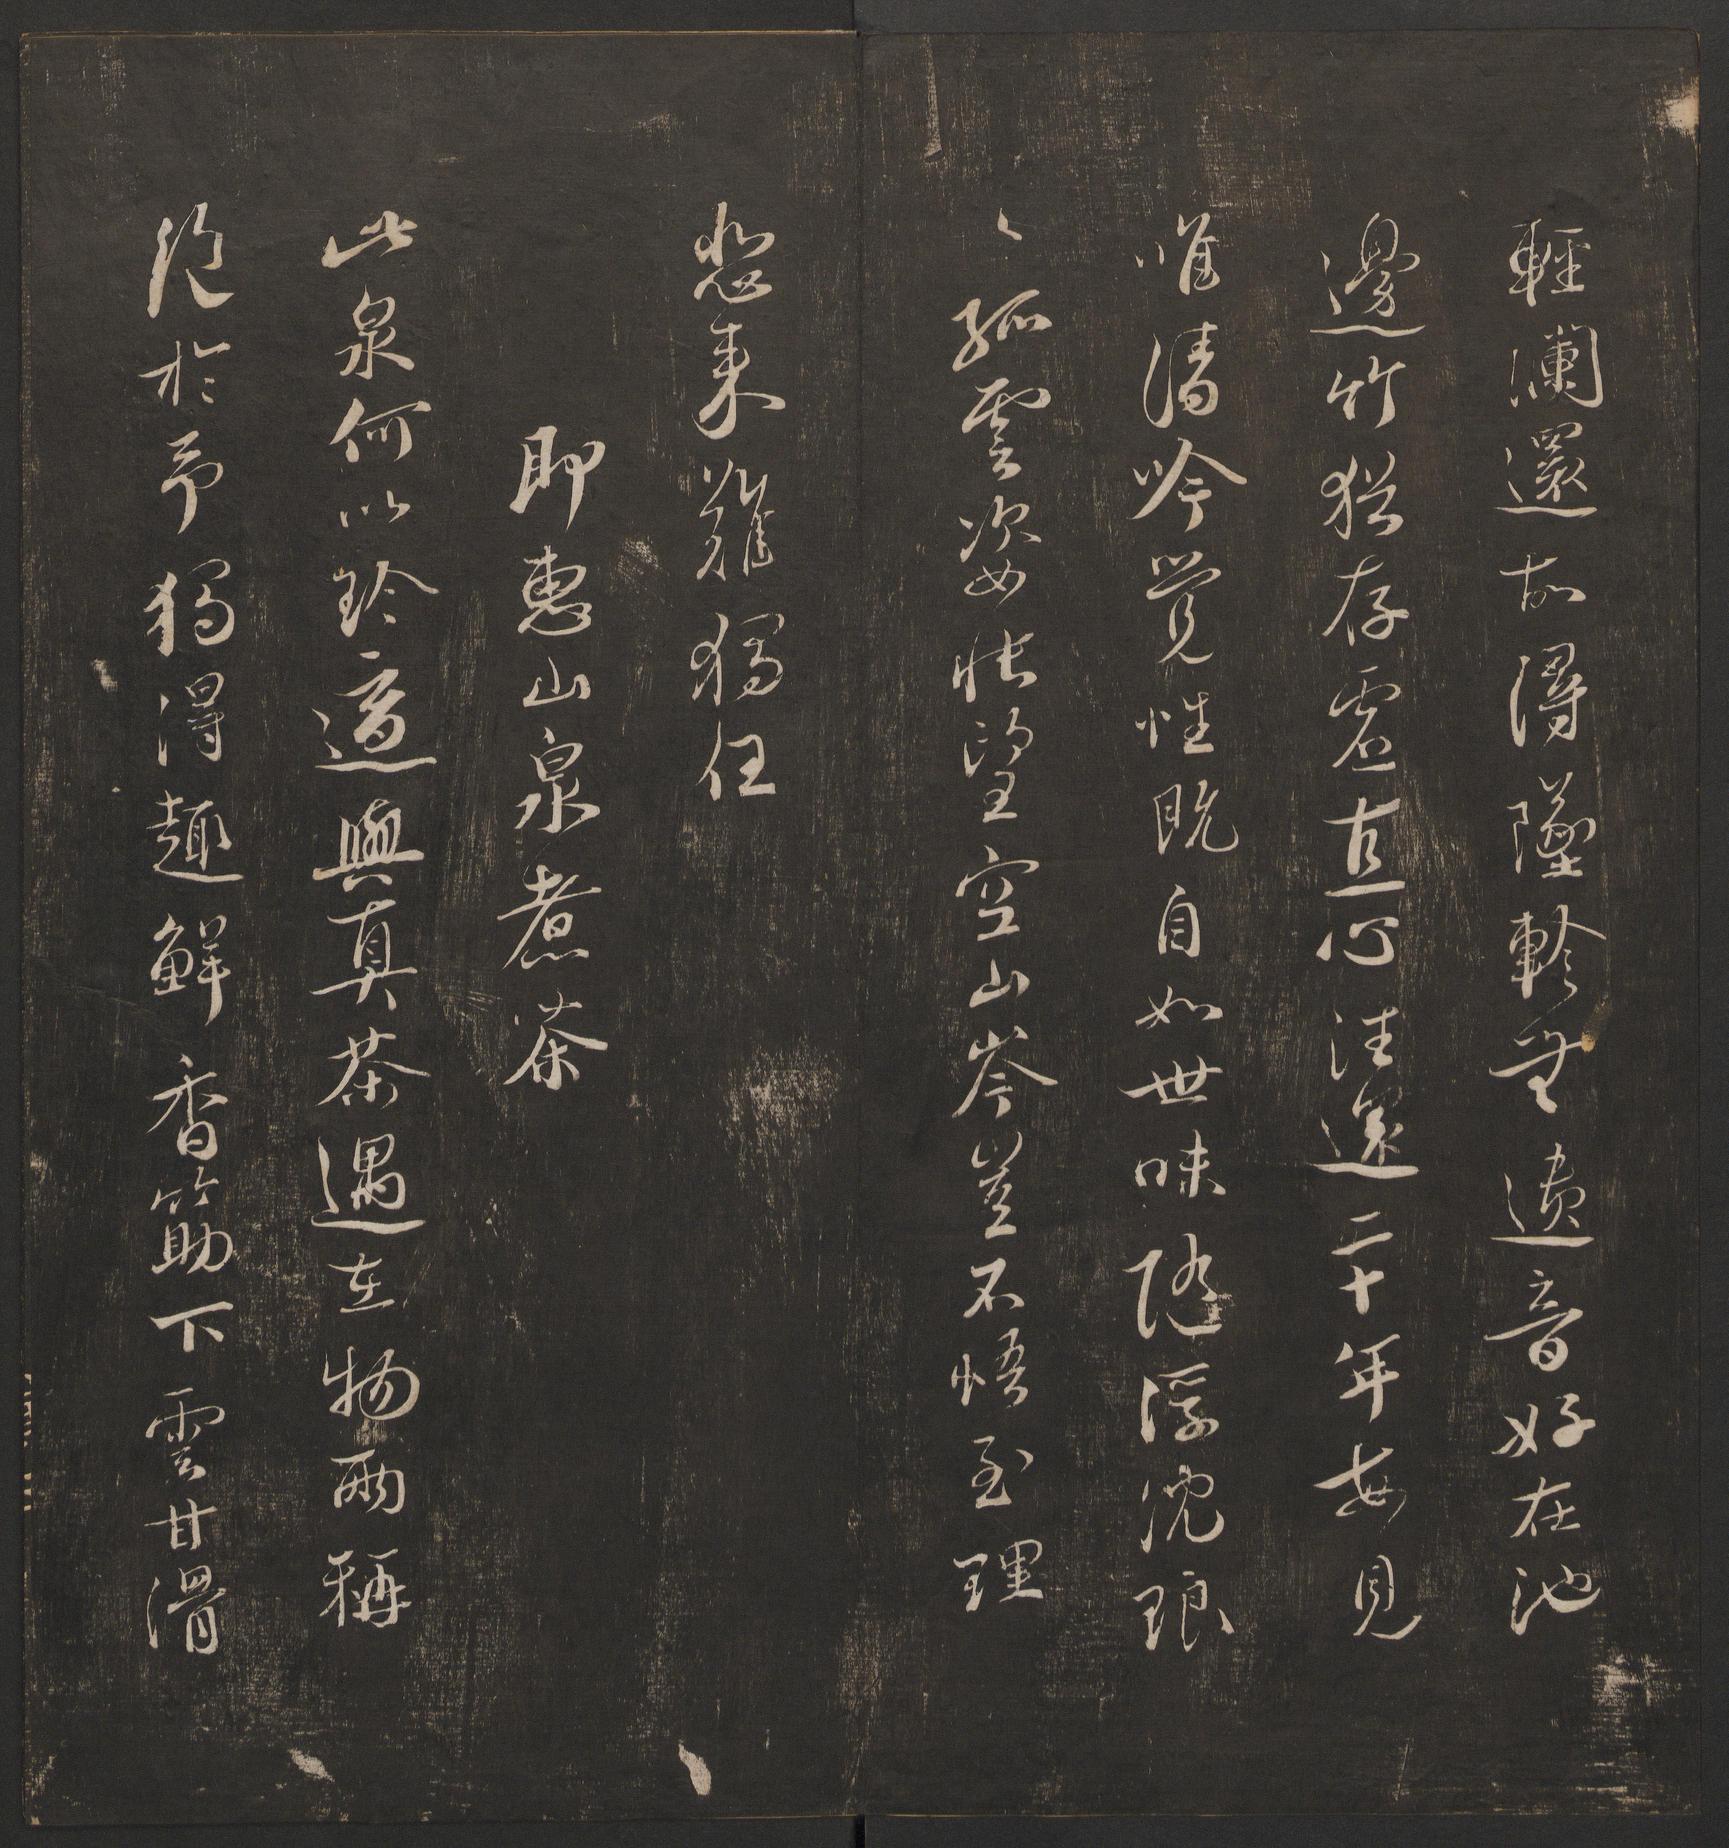 輕瀾還故潯墜軫無遺音好在池
邊竹猶存虛直心往還二十年每見
唯清吟覺性既自如世味隨浮沈琅
〻孤雲姿悵望空山岑豈不悟至理
愁來難獨任
即惠山泉煮茶
此泉何以珍適與真茶遇在物兩稱
絕於予獨得趣鮮香筯下雲甘滑